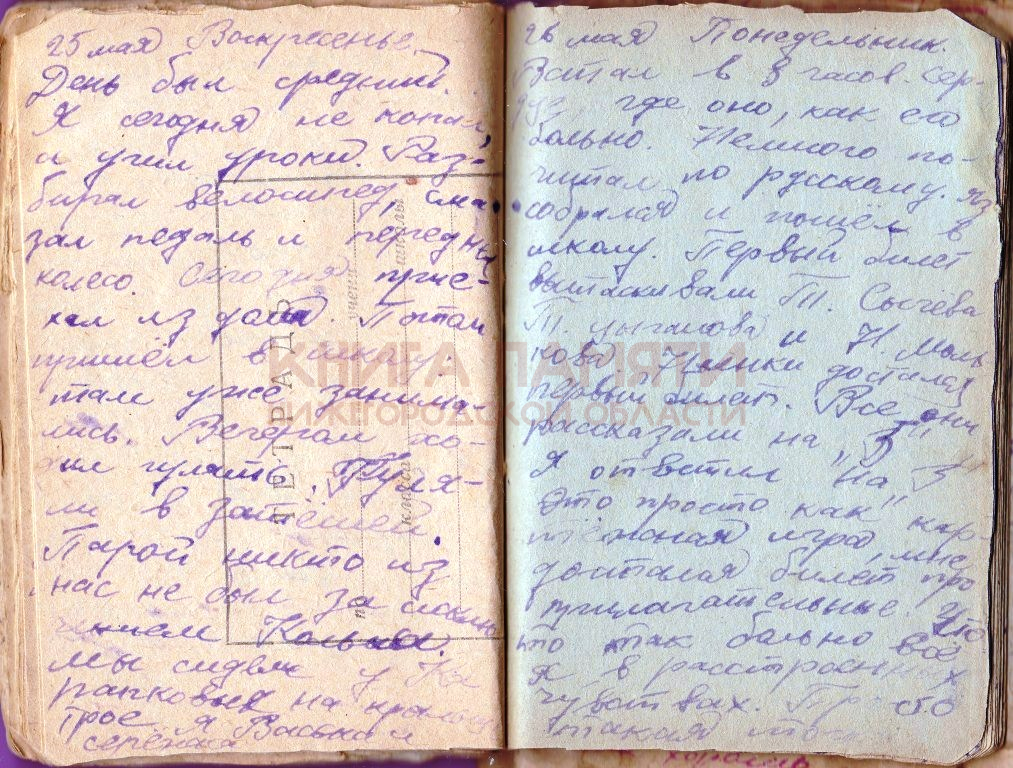 25 мая Воскресенье.
День был средний.
Я сегодня не копал,
а учил уроки. Раз-
бирал велосипед, сма-
зал педаль и передн
колесо. Сегодня прие-
хал из
пришёл в школу.
там уже занима-
лись. Вечером хо-
дил гулять. Гуля-
ли в
Парой никто из
нас не был за исклю
чением Кольки.
Мы сидели у Ко
рапковых на крыльце
трое я Васька и
Серёжка
ТЕТРАДЬ
учени
школы
класса
26 мая Понедельник.
Встал в 8 часов. Сер-
дце, где оно, как его
больно. Немного по-
читал по русскому.
собрался и пошёл в
школу. Первый билет
вытаскивали Т. Сычёва
Т. Цыганова и Н. Моль
кова. Нинки достался
первый билет. Все они
рассказали на "5"
я ответил на "3"
это просто как кар-
тёжная игра, мне
достался билет про
прилагательные. Что
кто так больно всё
я в расстроенных
чувствах.
такая
КНИГА ПАМЯТИ
НИЖЕГОРОДСКОЙ ОБЛАСТИ